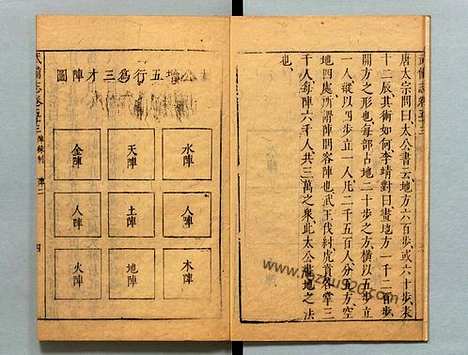 唐太宗問曰太公書云地方六百步或六十步表
十二辰其術如何李靖對曰畫地方一千二百步
開方之形也每部占地二十步之方橫以五步立
一人縱以四步立一人凡二千五百人分五方空
地四處所謂陣間容陣也武王伐紂虎賁各掌三
千人每陣六千人共三萬之眾此太公畫地之法
也
五行為三才陣圖
水陣
天陣
金陣
人陣
土陣
人陣
木陣
地陣
火陣
武備志卷五十三
四
www.kongfz.com